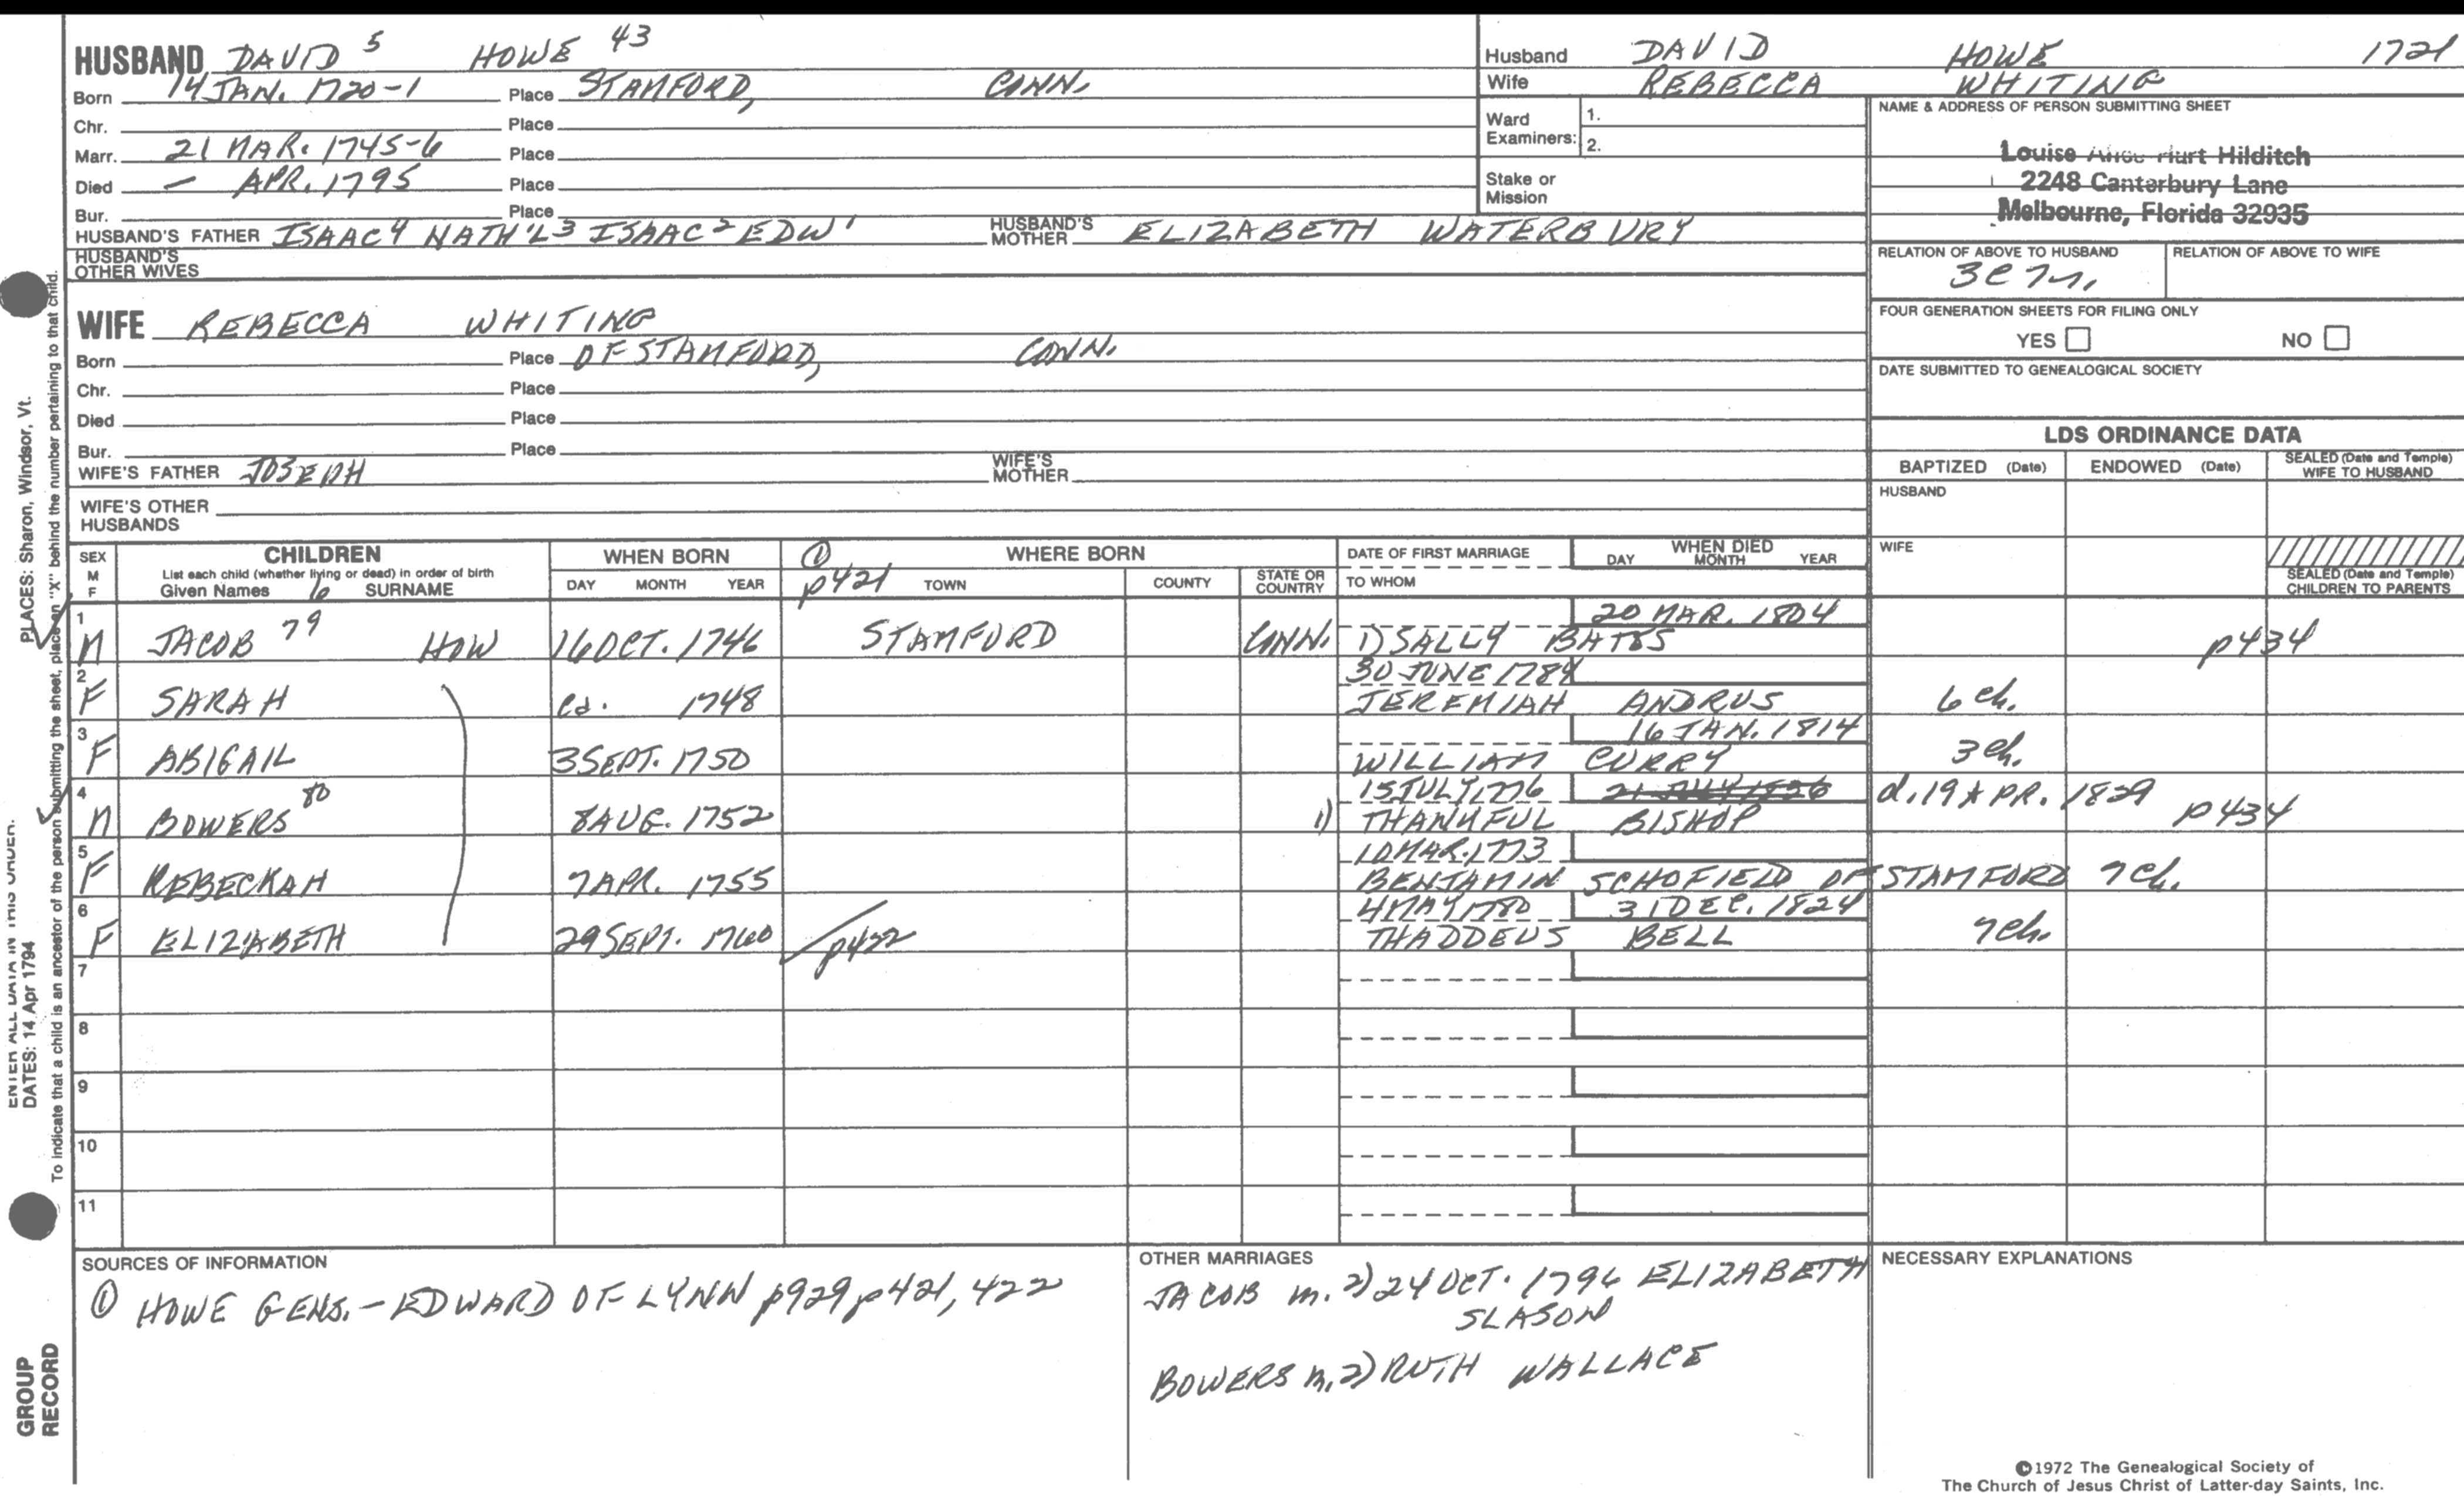 HUSBAND DAVID 5 HOWE 43
Born 14 JAN. 1720-1 Place STAMFORD, CONN.
Chr. Place
Marr. 21 MAR. 1745-6 Place
Died — APR. 1795 Place
Bur. Place
HUSBAND'S FATHER ISAAC 4 NATH'L 3 ISAAC 2 EDW 1 HUSBAND'S MOTHER ELIZABETH WATERBURY
HUSBAND'S OTHER WIVES
WIFE REBECCA WHITING
Born Place OF STAMFORD, CONN.
Chr. Place
Died Place
Bur. Place
WIFE'S FATHER JOSEPH WIFE'S MOTHER
WIFE'S OTHER HUSBANDS
Husband DAVID HOWE 1721
Wife REBECCA WHITING
Ward Examiners: 1.
2.
Stake or Mission
NAME & ADDRESS OF PERSON SUBMITTING SHEET
Louise Hart Hilditch
2248 Canterbury Lane
Melbourne, Florida 32935
RELATION OF ABOVE TO HUSBAND RELATION OF ABOVE TO WIFE
FOUR GENERATION SHEETS FOR FILING ONLY
YES NO
DATE SUBMITTED TO GENEALOGICAL SOCIETY
LDS ORDINANCE DATA
BAPTIZED (Date) ENDOWED (Date) SEALED (Date and Temple) WIFE TO HUSBAND
HUSBAND
WIFE
SEALED (Date and Temple) CHILDREN TO PARENTS
SEX M F
CHILDREN
List each child (whether living or dead) in order of birth
Given Names 6 SURNAME
WHEN BORN
DAY MONTH YEAR
① WHERE BORN
p421 TOWN COUNTY STATE OR COUNTRY
DATE OF FIRST MARRIAGE
TO WHOM
WHEN DIED
DAY MONTH YEAR
20 MAR. 1804
1 M JACOB 79 HOW 16 OCT. 1746 STAMFORD CONN. 1) SALLY BATES p434
30 JUNE 1784
2 F SARAH ca. 1748 JEREMIAH ANDRUS 6 ch.
16 JAN. 1814
3 F ABIGAIL 3 SEPT. 1750 WILLIAM CURRY 3 ch.
15 JULY 1776 d. 19 APR. 1829
4 M BOWERS 80 8 AUG. 1752 1) THANKFUL BISHOP p434
10 MAR. 1773
5 F REBECKAH 7 APR. 1755 BENJAMIN SCHOFIELD OF STAMFORD 7 ch.
4 MAY 1780 31 DEC. 1824
6 F ELIZABETH 29 SEPT. 1760 p422 THADDEUS BELL 7 ch.
7
8
9
10
11
SOURCES OF INFORMATION
① HOWE GENS. - EDWARD OF LYNN p929 p421, 422
OTHER MARRIAGES
JACOB m. 2) 24 OCT. 1796 ELIZABETH
SLASON
BOWERS m. 2) RUTH WALLACE
NECESSARY EXPLANATIONS
©1972 The Genealogical Society of
The Church of Jesus Christ of Latter-day Saints, Inc.
PLACES: Sharon, Windsor, Vt.
ENTER ALL DATA IN THIS ORDER:
DATES: 14 Apr 1794
To indicate that a child is an ancestor of the person submitting the sheet, place an "X" behind the number pertaining to that child.
GROUP
RECORD